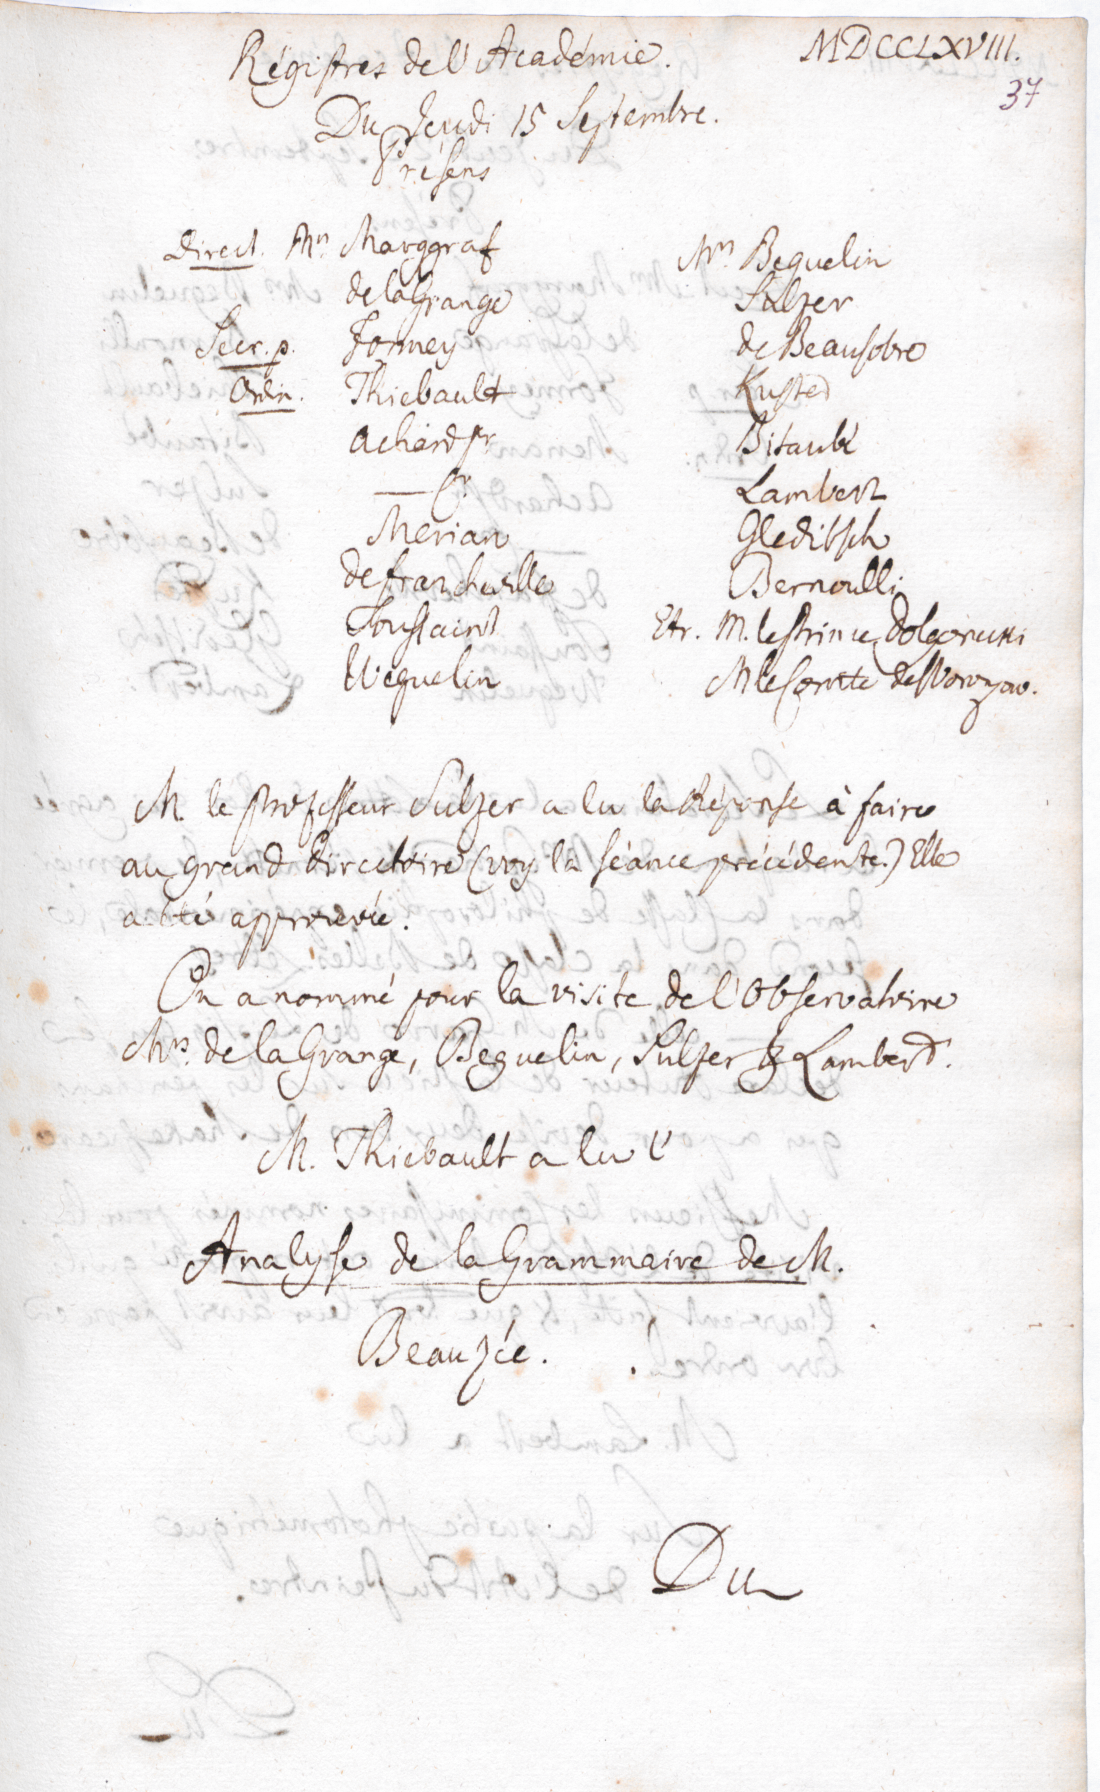 Régistres de l'Académie.
MDCCLXVIII.
37
Du Jeudi 15 Septembre.
Présens
Direct. Mrs Marggraf
de la Grange
Secr. p. Formey
Ordin. Thiebault
Achard pr
Merian
de Francheville
Toussaint
Weguelin
Mrs Beguelin
Sulzer
de Beausobre
Kuster
Bitaubé
Lambert
Gleditsch
Bernoulli
Etr. M. le Prince Dolgorucki
M le Comte de Woronzow.
M. le Professeur Sulzer a lu la Réponse à faire
au grand Directoire (voy. la séance précédente.) Elle
a été approuvée.
On a nommé pour la visite de l'Observatoire
Mrs. de la Grange, Beguelin, Sulzer & Lambert.
M. Thiebault a lu l'
Analyse de la Grammaire de M.
Beauzée.
Du